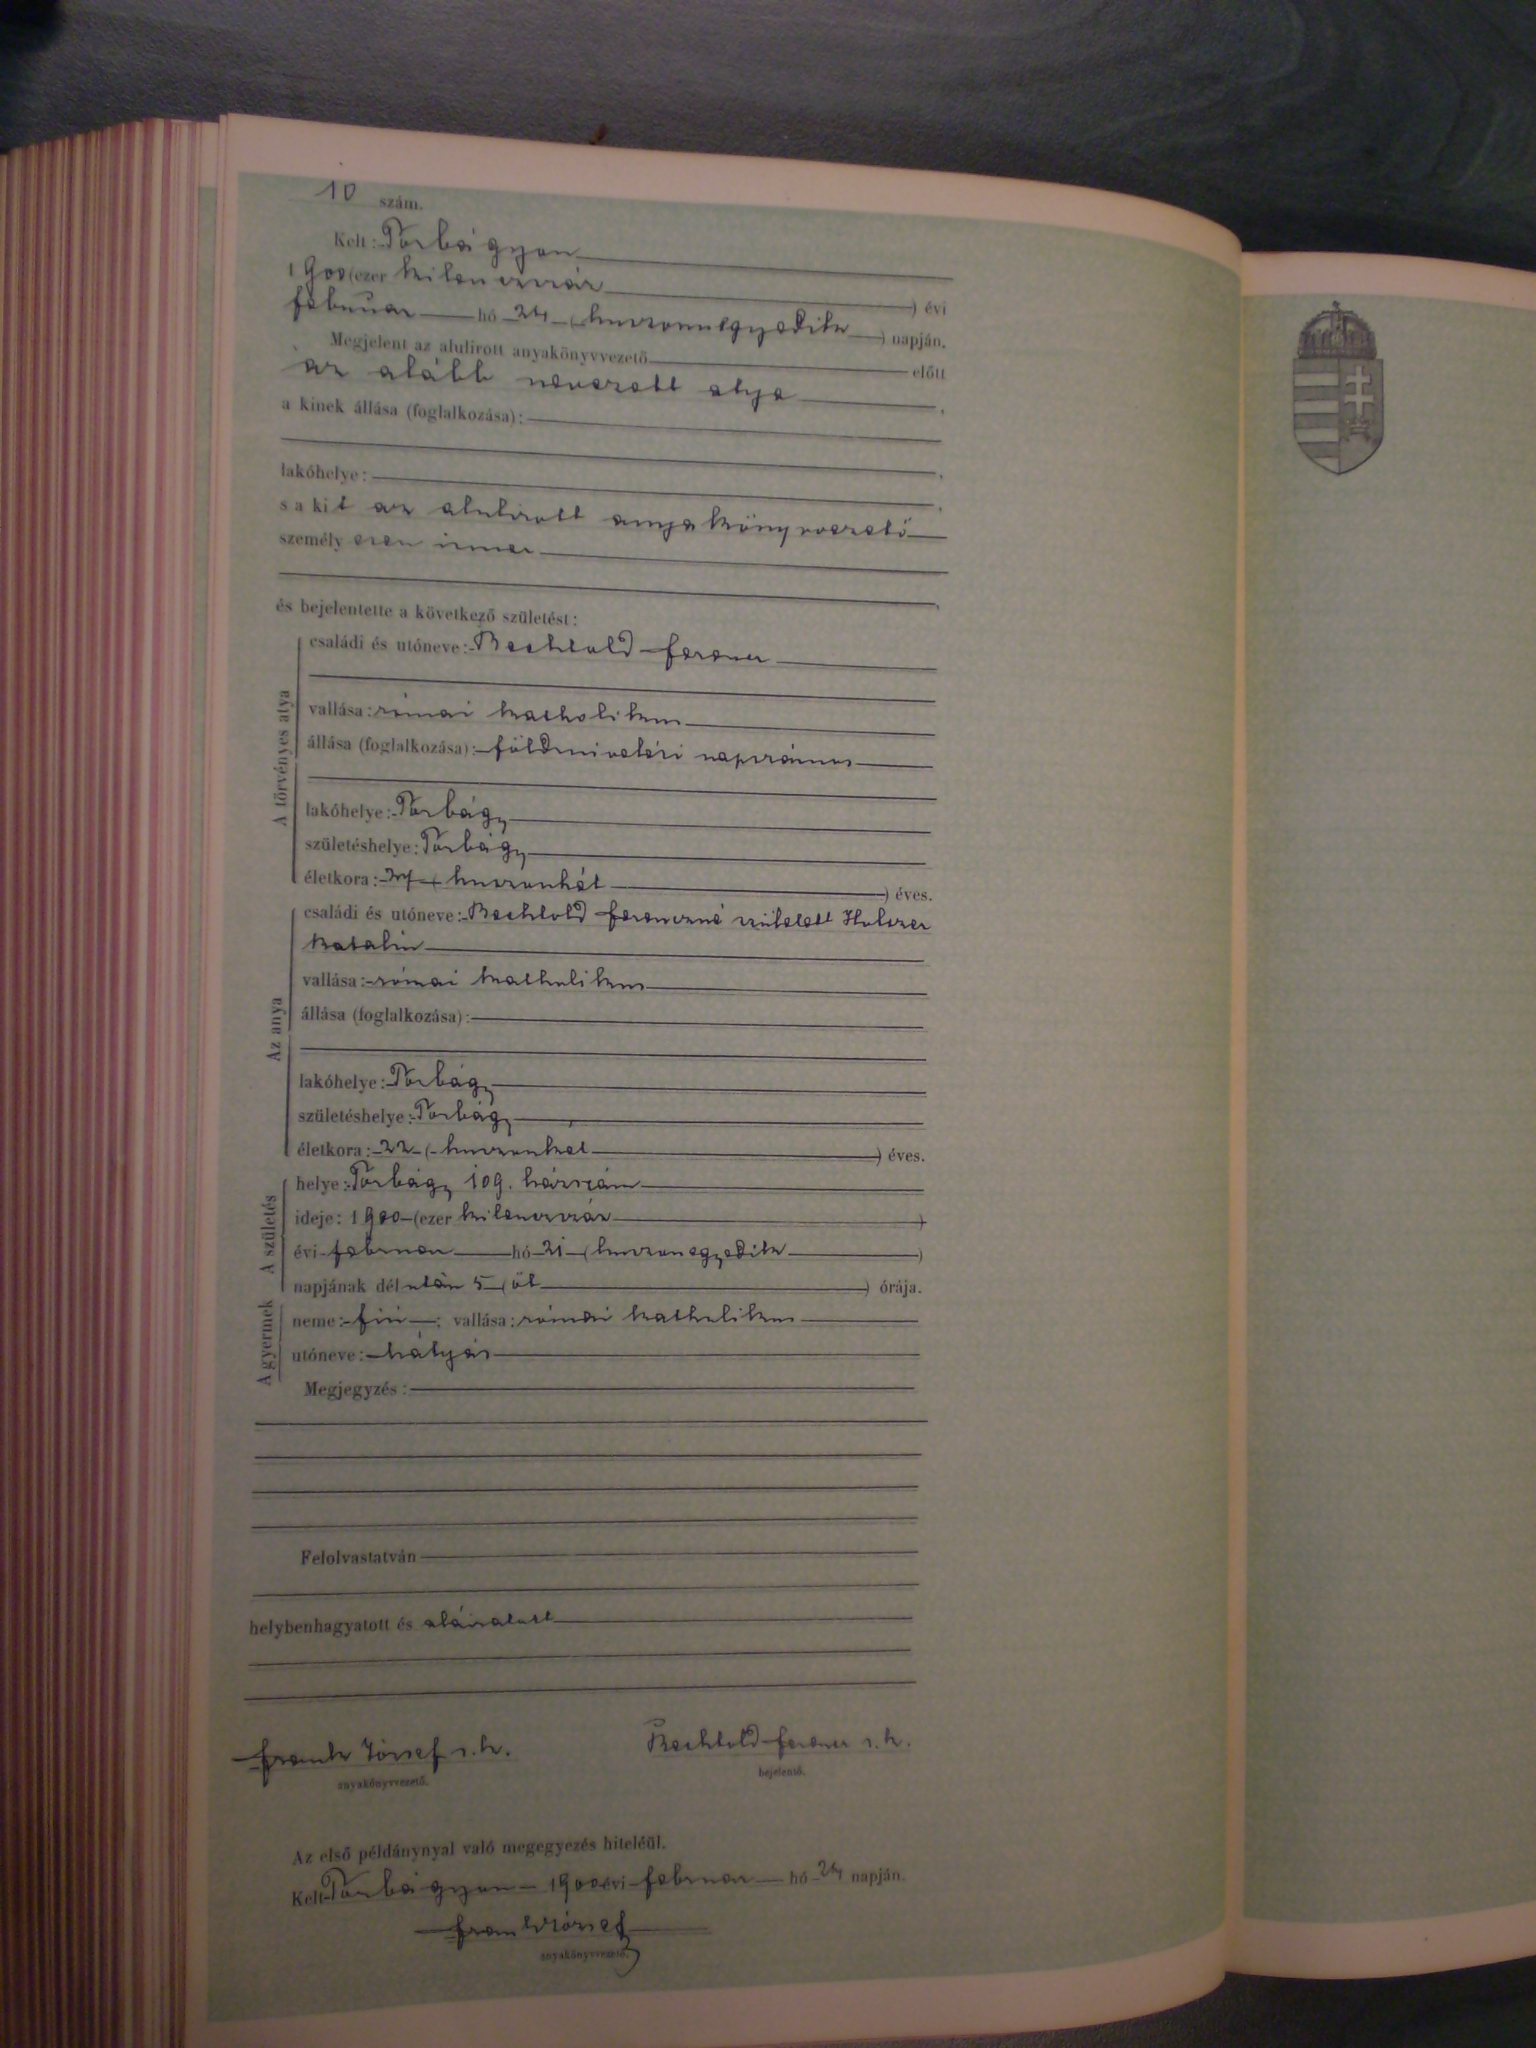 10 szám.
Kelt: Torbágyon
1900 (ezer kilenczszáz ) évi
februar hó 24 ( huszonnegyedik ) napján.
Megjelent az alulirott anyakönyvvezető előtt
az alább nevezett atya ,
a kinek állása (foglalkozása):
lakóhelye: ,
s a kit az alulirott anyakönyvvezető
személyesen ismer
és bejelentette a következő születést:
A törvényes atya
családi és utóneve: Bechtold Ferencz
vallása: római katholikus
állása (foglalkozása): földmivelési napszámos
lakóhelye: Torbágy
születéshelye: Torbágy
életkora: 27 ( huszonhét ) éves.
Az anya
családi és utóneve: Bechtold Ferenczné született Holczer
Katalin
vallása: római katholikus
állása (foglalkozása):
lakóhelye: Torbágy
születéshelye: Torbágy
életkora: 22 ( huszonkét ) éves.
A születés
helye: Torbágy 109. házszám
ideje: 1900 (ezer kilenczszáz )
évi februar hó 21 ( huszonegyedik )
napjának délután 5 ( öt ) órája.
A gyermek
neme: fiú ; vallása: római katholikus
utóneve: Mátyás
Megjegyzés:
Felolvastatván
helybenhagyatott és aláiratott
Frank József s. k. Bechtold Ferencz s. k.
anyakönyvvezető. bejelentő.
Az első példánynyal való megegyezés hiteléül.
Kelt Torbágyon 1900 évi februar hó 24 napján.
Frank József
anyakönyvvezető.